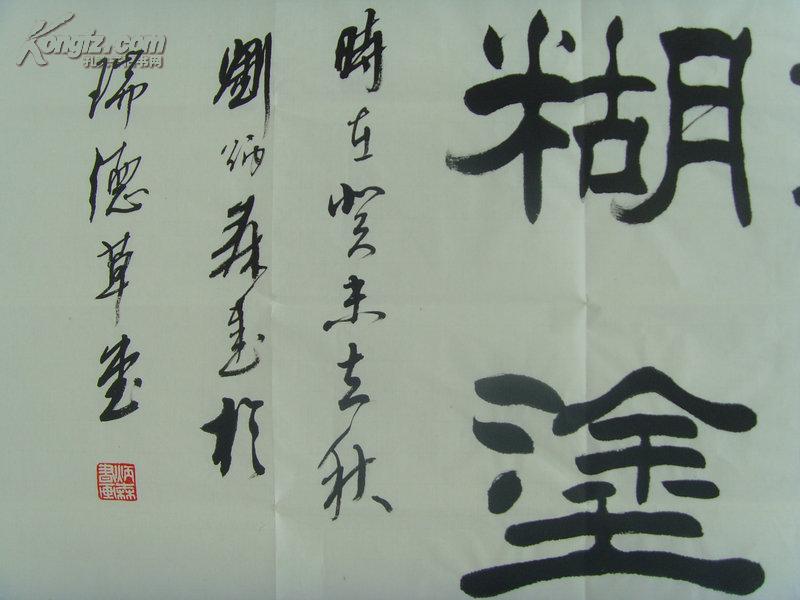 糊塗
時在癸未立秋
劉炳森書於
瑞德草堂
炳森書畫
Kongfz.com
孔夫子旧书网